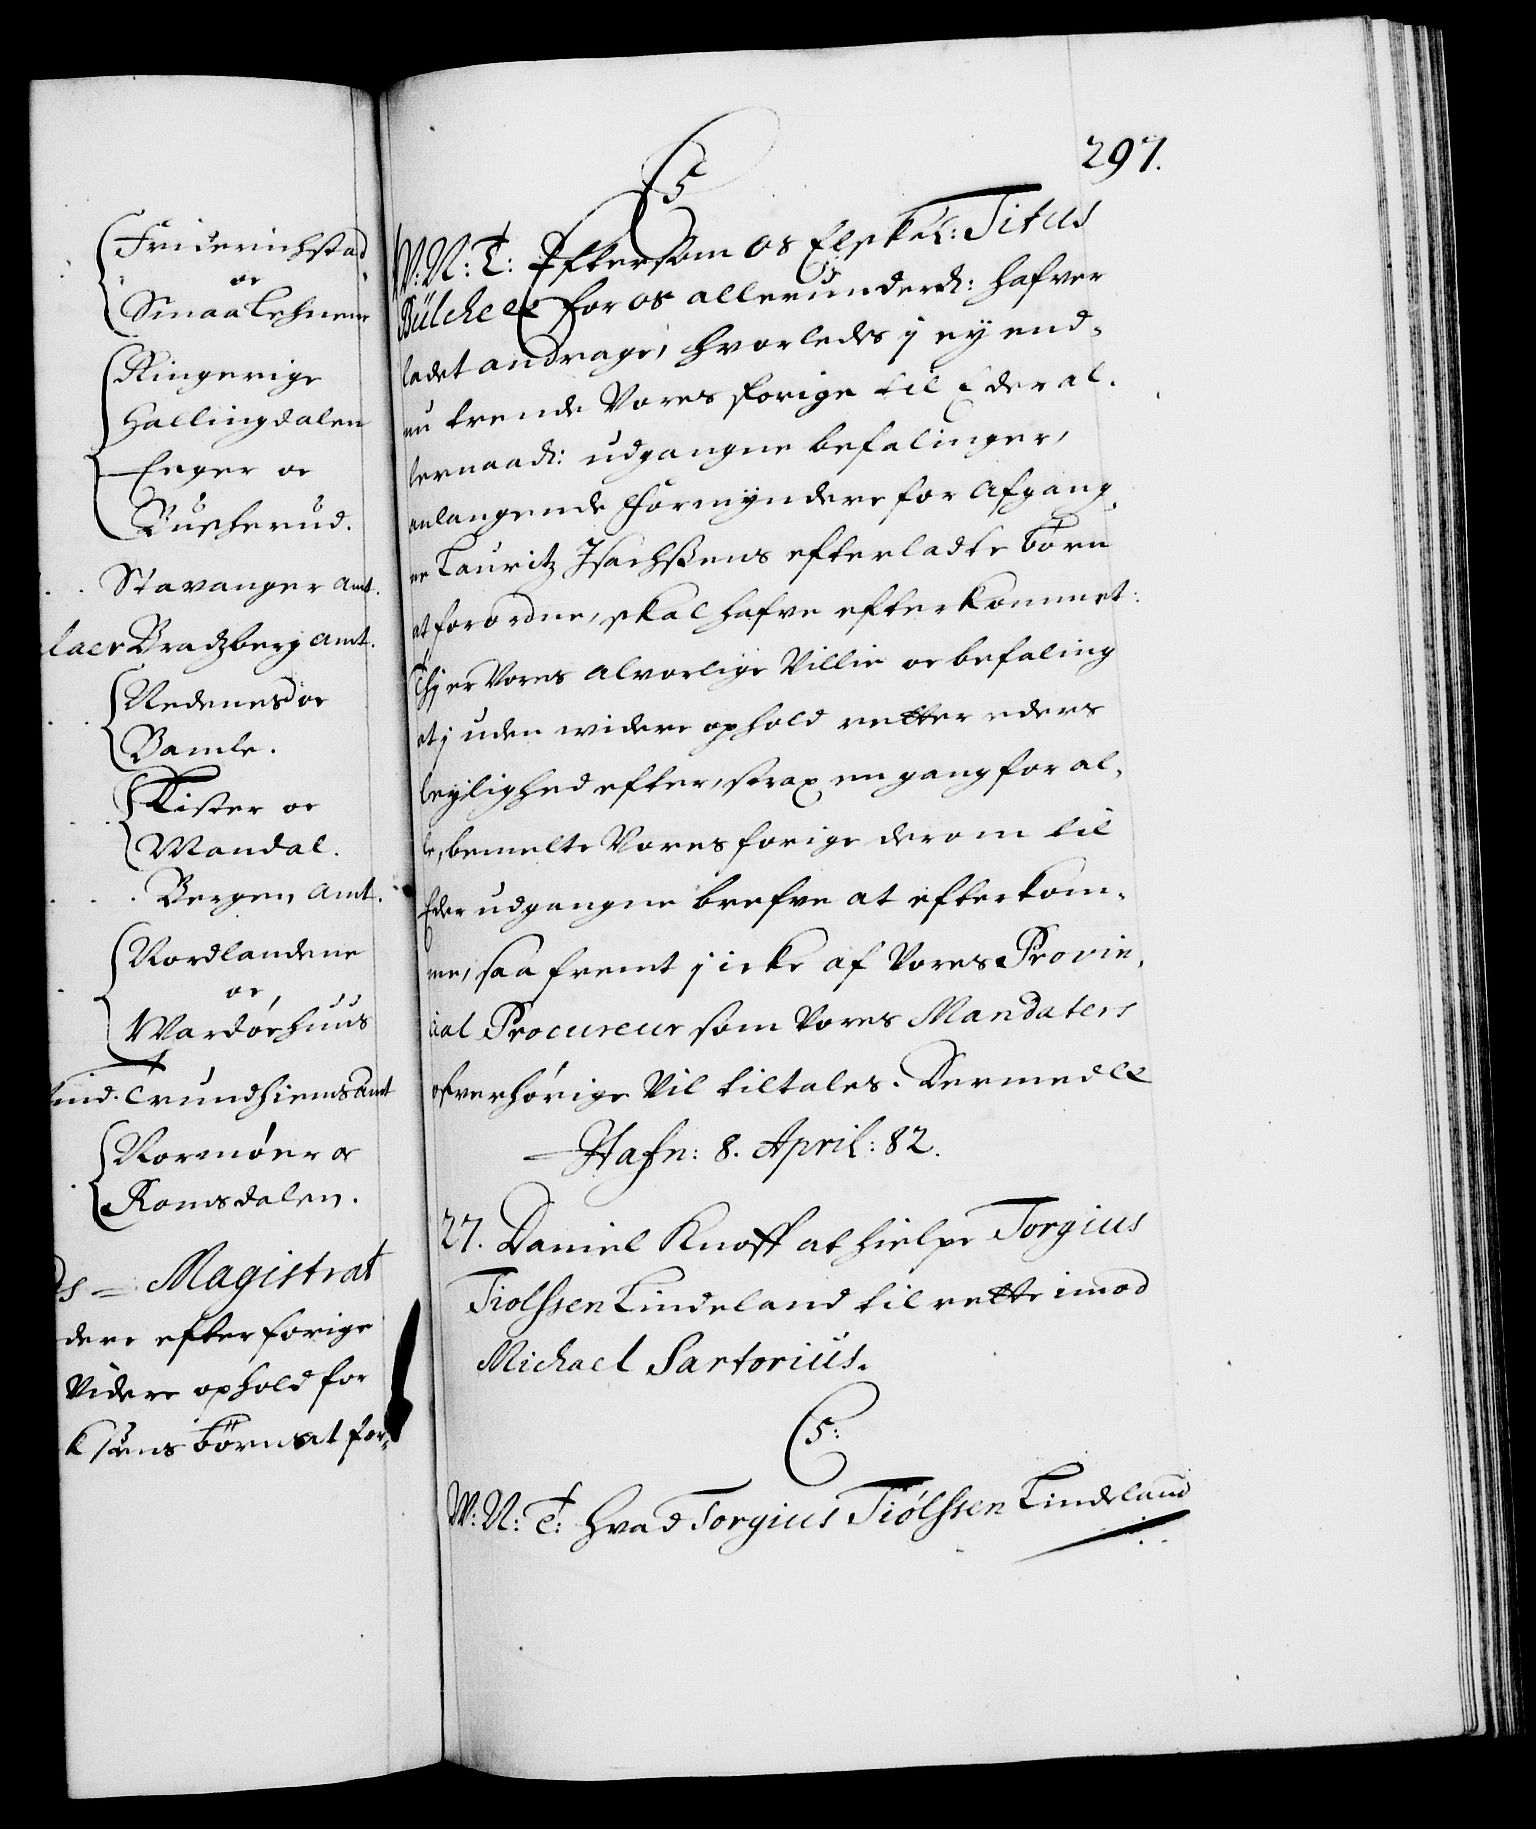 Friderichstad
oc
Smaa Lehnene
Ringerige
Hallingdalen
Eger oc
Buskerud.
Stavanger Amt.
laer Bradzberg Amt.
Nedenes oc
Bamle.
Lister oc
Mandal.
Bergen Amt.
Nordlandene
oc
Wardøehuus
Trundhiems Amt
Normøer oc
Romsdalen.
Magistrat
dere efter forige
Videre ophold for
ksens børn at for-
297.
C5
V: N: T: Eftersom os Elskel: Titus
Bülche for os allerunderd: hafver
ladet andrage, hvorledes j ey end-
nu trende Vores forige til Eder al-
lernaad: udgangne befalinger,
anlangende Formyndere for Afgang-
ne Lauritz Isachsens efterladte børn
at forordne, skal hafve efterkommet:
Thj er Vores alvorlige Villie oc befaling
at j uden widere ophold retter eders
leylighed efter, strax en gang for al-
le, bemelte Vores forige derom til
Eder udgangne brefve at efterkom-
me, saa fremt j icke af Vores Provin-
cial Procureur som Vores Mandaters
ofverhørige Vil tiltales. Dermed etc
Hafn: 8. April: 82.
27. Daniel Knoff at hielpe Torgius
Tiolssen Lindeland til rette imod
Michael Sartorius.
C5:
W: N: T: Hvad Torgius Tiólssen Lindeland